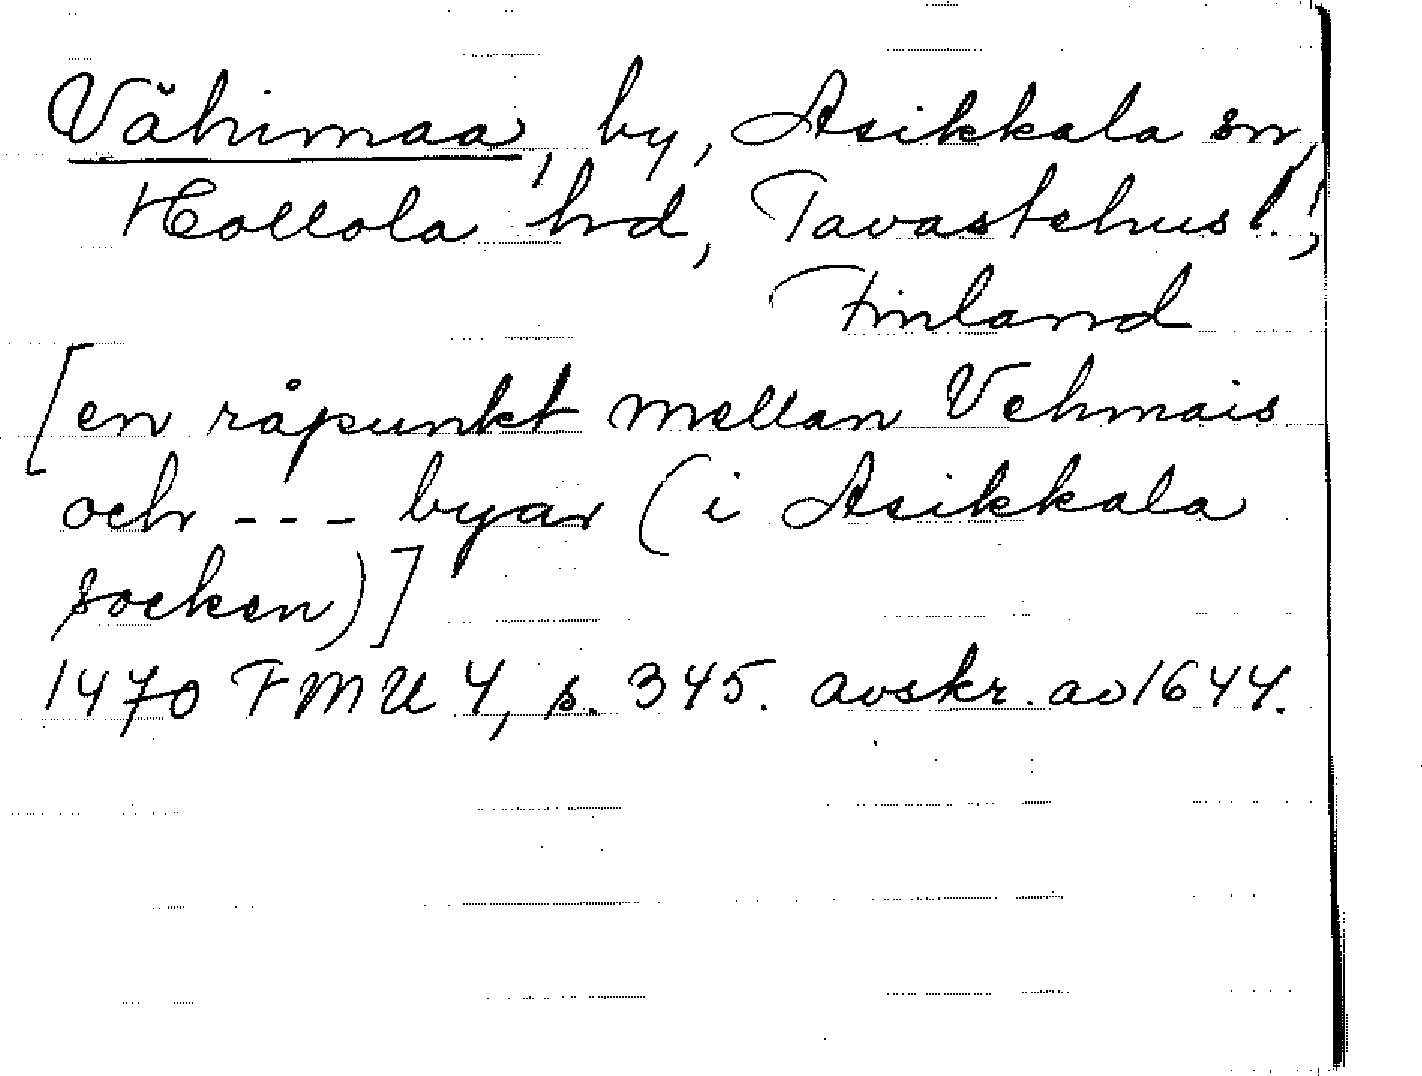 Vähimaa, by, Asikkala sn,
Hollola hd, Tavastehus l.;
Finland
[en råpunkt mellan Vehmais
och - - - byar (i Asikkala
socken)]
1470 FMU 4, s. 345. avskr. av 1644.